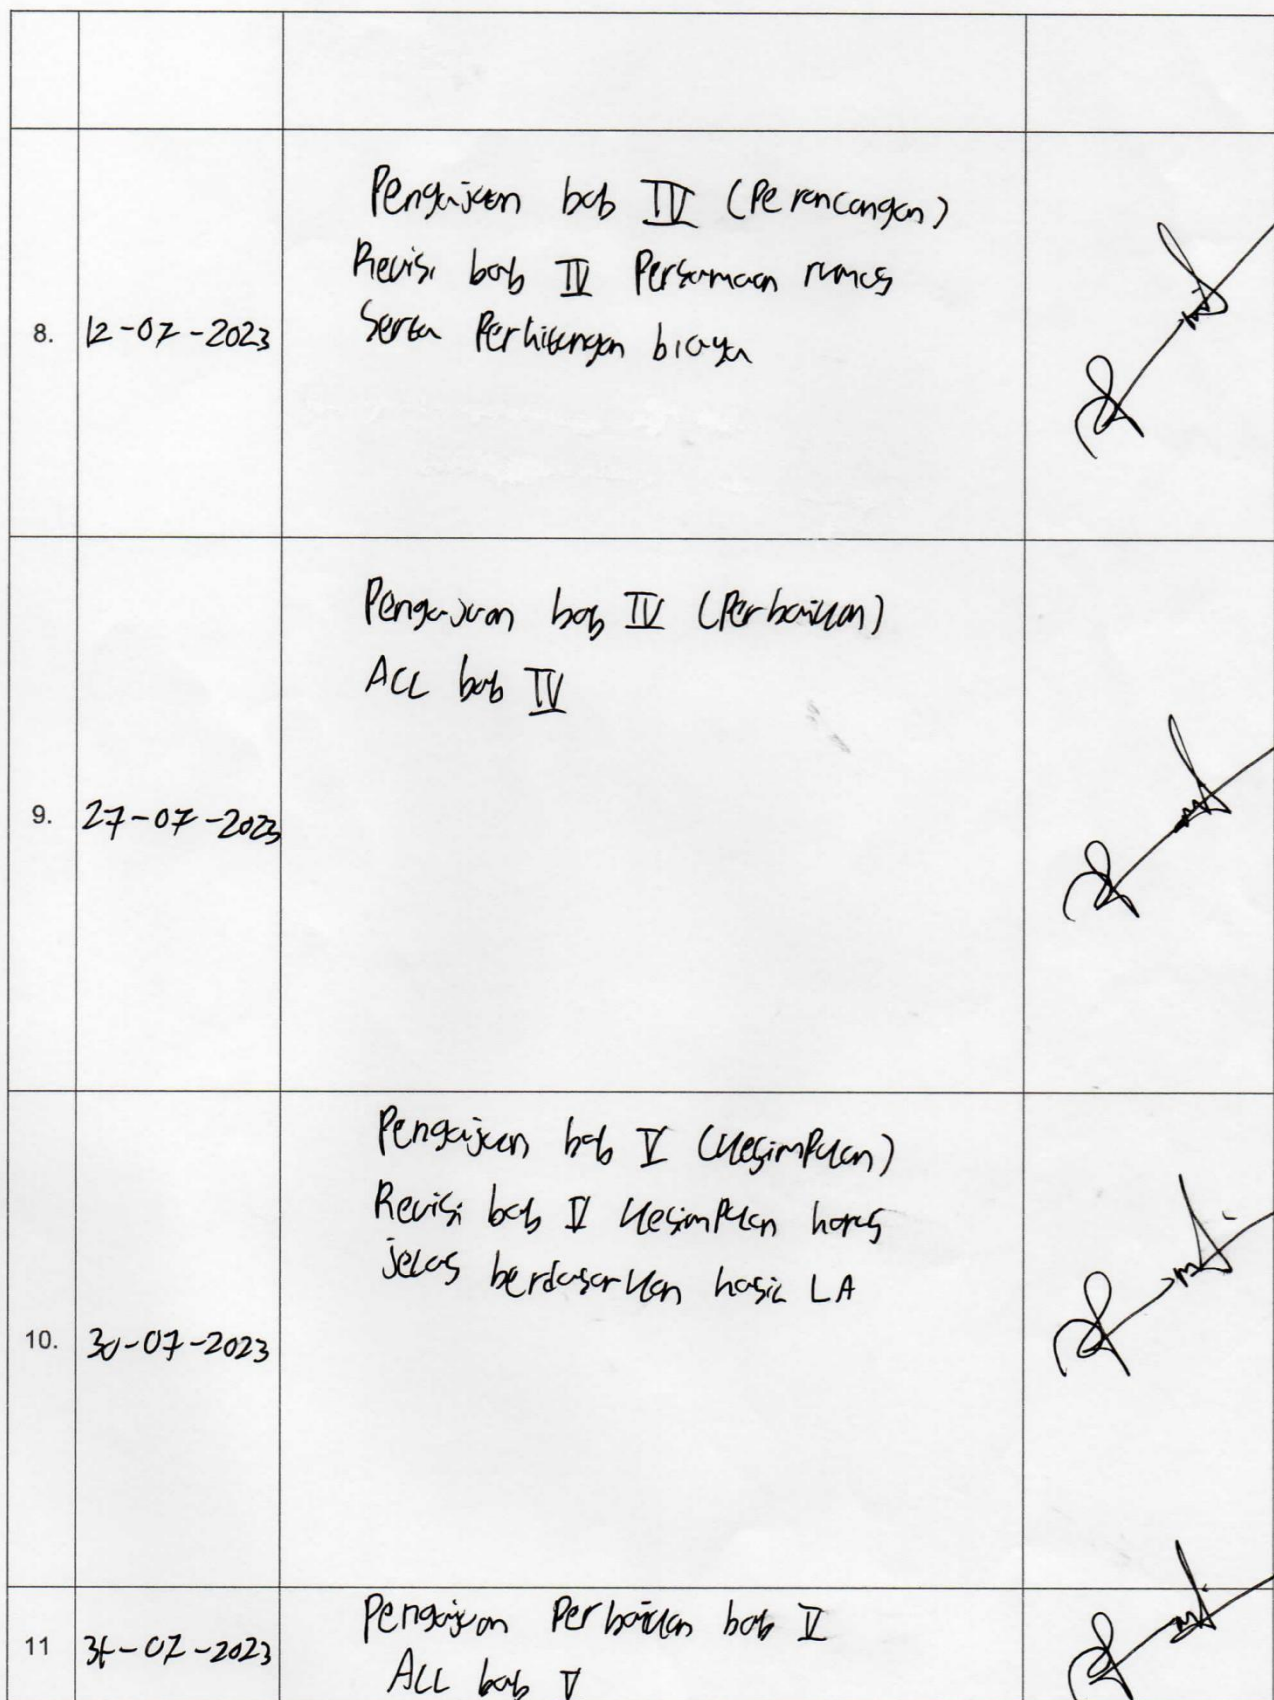 Pengajuan bab IV (Perancangan)
Revisi bab IV Persamaan rumus
8. 12-07-2023 Serta Perhitungan biaya
Pengajuan bab IV (Perbaikan)
ACC bab IV
9. 27-07-2023
Pengajuan bab V (Kesimpulan)
Revisi bab V Kesimpulan harus
jelas berdasarkan hasil LA
10. 30-07-2023
Pengajuan Perbaikan bab V
11 31-07-2023
ACC bab V